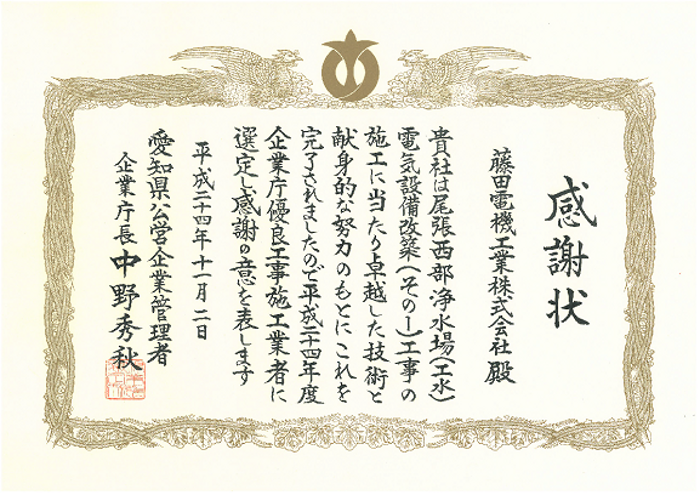 感謝状
藤田電機工業株式会社 殿
貴社は尾張西部浄水場(工水)
電気設備改築(その1)工事の
施工に当たり卓越した技術と
献身的な努力のもとにこれを
完了されましたので平成二十四年度
企業庁優良工事施工業者に
選定し感謝の意を表します
平成二十四年十一月二日
愛知県公営企業管理者
企業庁長 中野秀秋